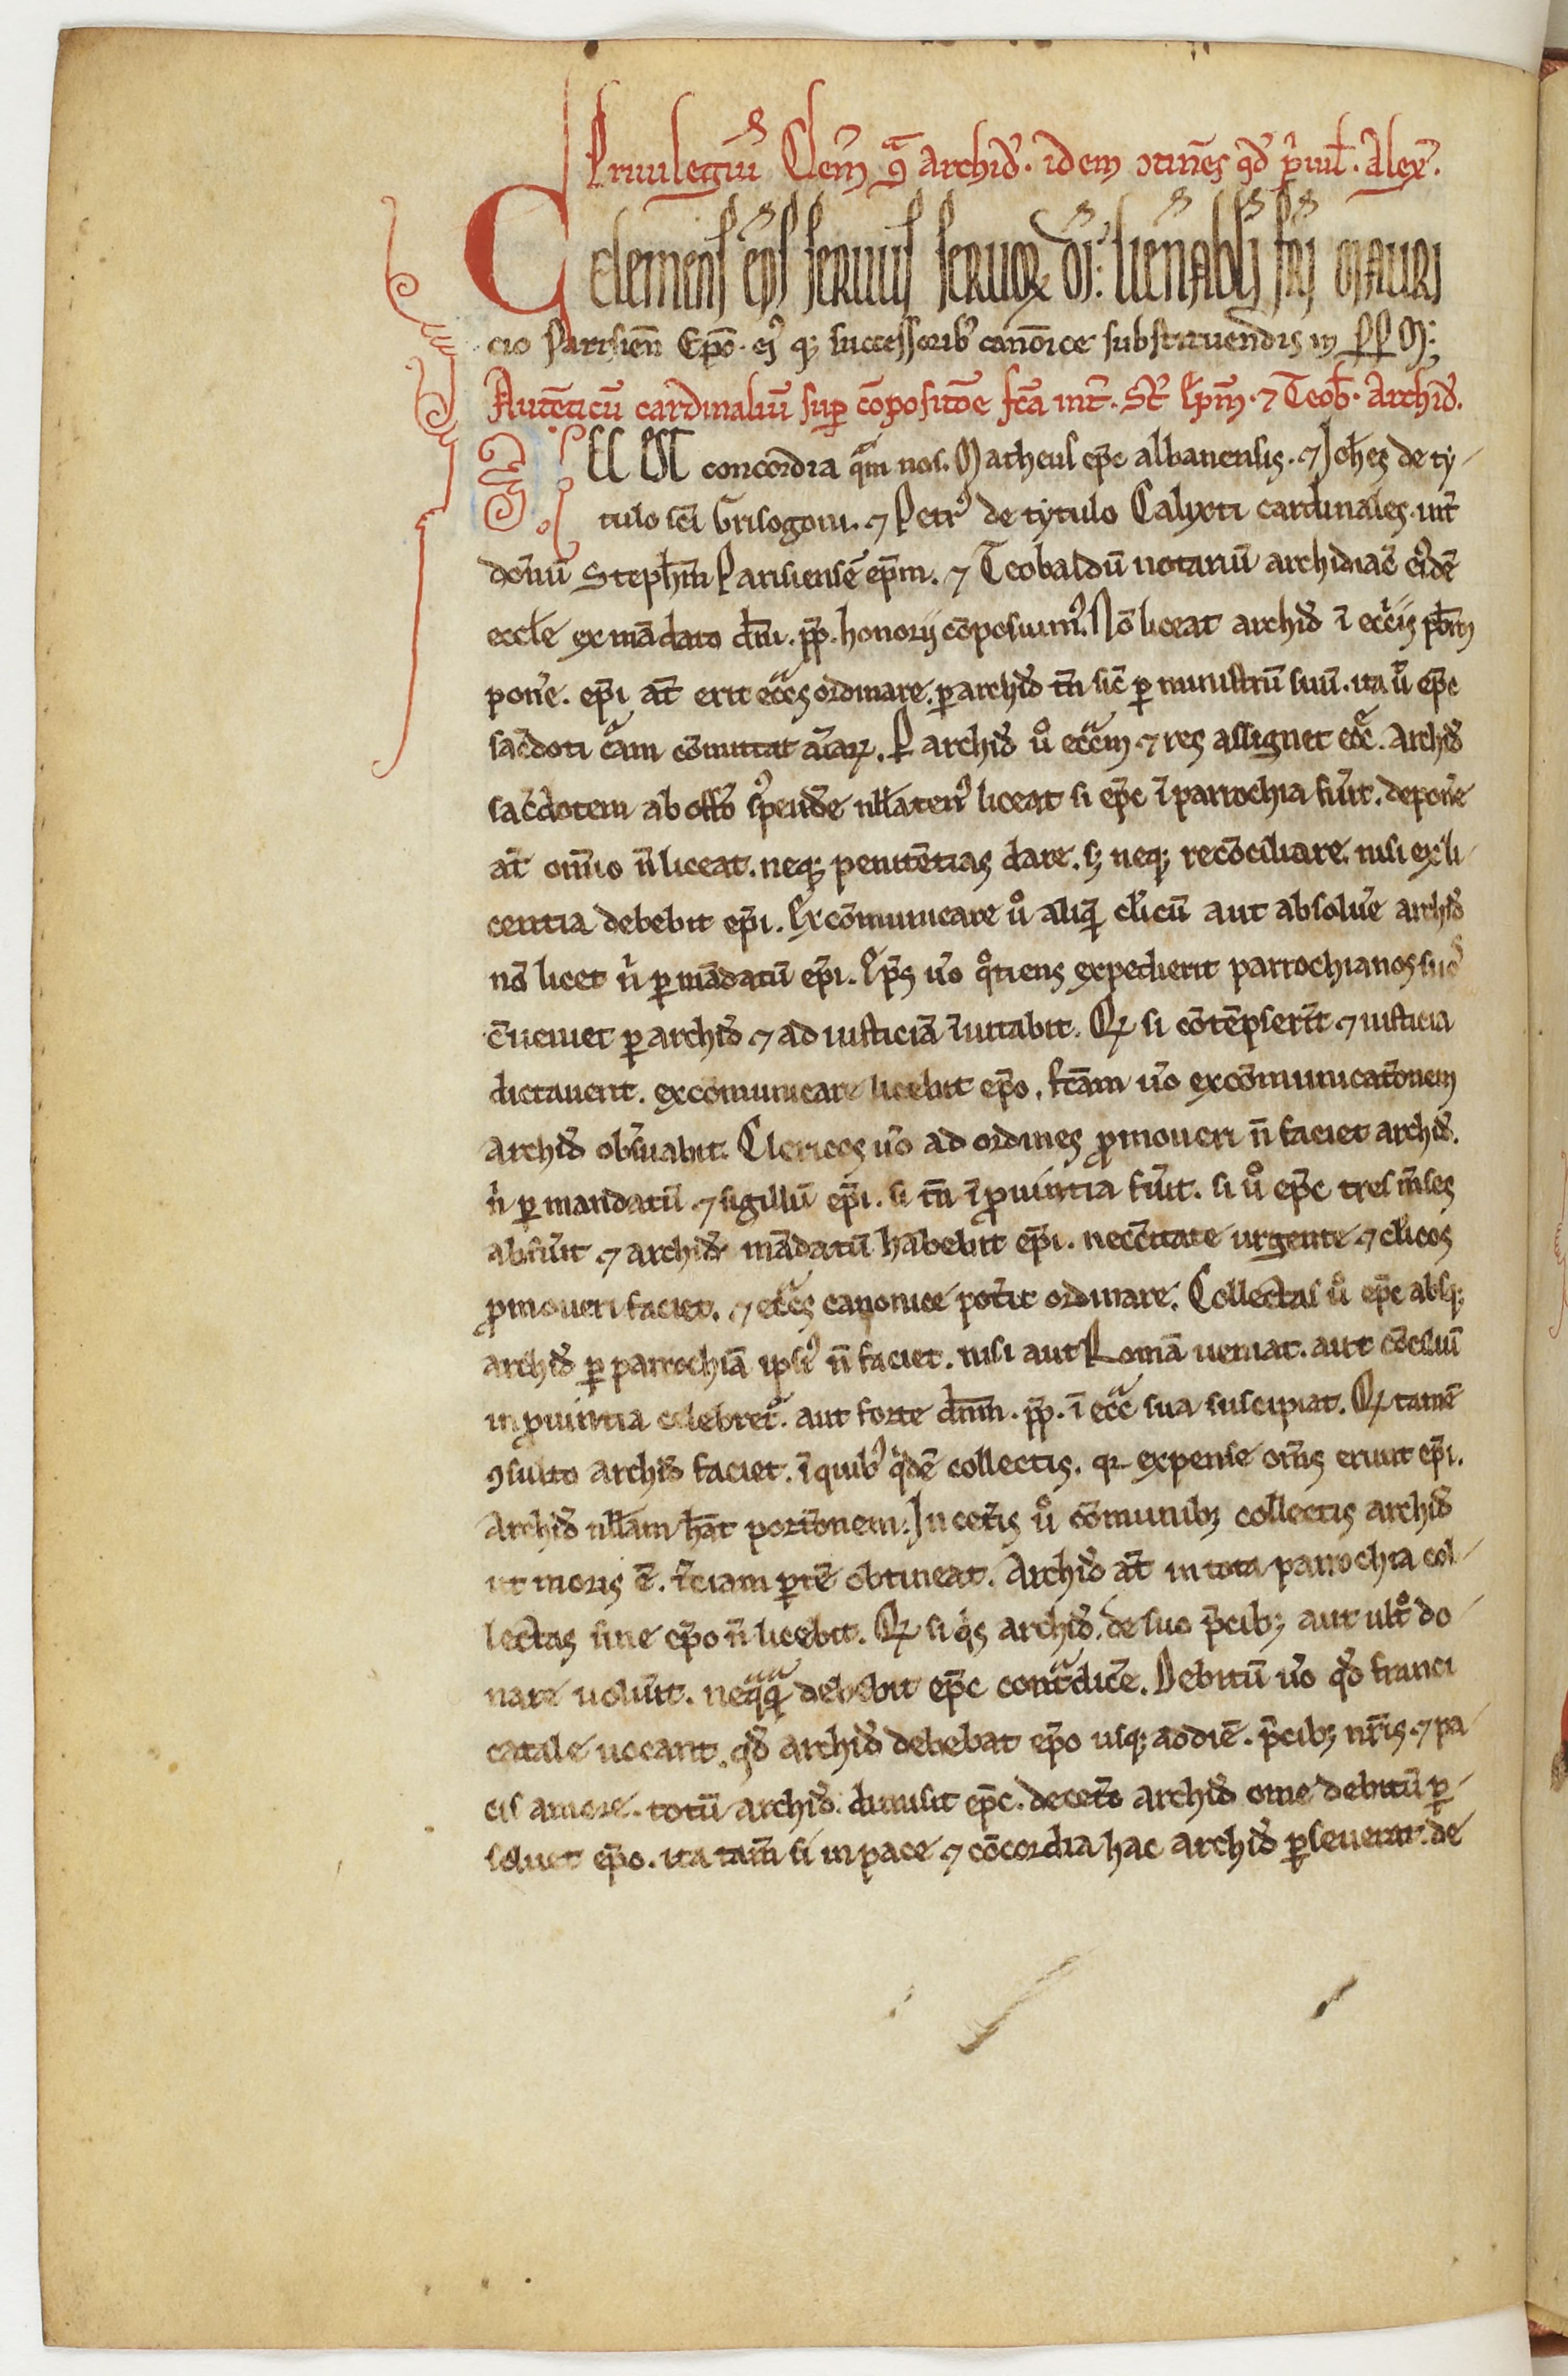 Priuilegiū Clem̄ ꝯᵃ archid̄. idem ↄtinēs qd̄ p̄uil̄. Alex̄.
Clemens ep̄s seruus seruoꝝ dī: uen̄abłi fr̄i mauri
cio Parisien̄ Ep̄o. eiꝰ qꝫ successoribꝰ canōice substituendis in PP M:
Autēticū cardinaliū suꝑ cōpositōe fc̄a int̄. St̄. Ep̄m. ⁊ Teob̄. Archid̄.
EC EST concordia qᵃm nos. Matheus ep̄c albanensis. ⁊ Joh̄es de ty-
tulo sc̄i Grisogoni. ⁊ Petrꝰ de tytulo Calyxti cardinales. int̄
dom̄nū Steph̄m Parisiensē ep̄m. ⁊ Teobaldū notariū archidiac̄ eiꝰdē
eccl̄e ex mādato dn̄i. pp̄. honorij cōposuimꝰ. Nō liceat archid̄ ī eccīis p̄bm
pon̄e. ep̄i at̄ erit ecc̄as ordinare. ꝑ archid̄ tn̄ sic̄ ꝑ ministrū suū. ita u̾ ep̄c
sac̄doti cᵃm cōmittat aīaꝝ. P archid̄ uͦ ecc̄am ⁊ res assignet ecc̄ᵉ. Archid̄
sac̄dotem ab off̄o sꝰpend̄e nll̄atenꝰ liceat si ep̄c ī parrochia fu̾it. depon̄e
at̄ om̄io n̄ liceat. neqꝫ penitētias dare. sꝫ neqꝫ recōciliare. nisi ex li-
centia debebit ep̄i. Excōmunicare uͦ aliqᵉ cl̾icū aut absolu̾e archid̄
nō licet n̾ ꝑ mādatū ep̄i. Ep̄s u̾o qͦtiens expedierit parrochianos suoˢ
c̄ueniet ꝑ archid̄ ⁊ ad iusticiā īuitabit. Qꝫ si cōtēpserīt ⁊ iusticia
dictauerit. excōmunicare licebit ep̄o. fc̄am u̾o excōmunicat̄onem
archid̄ obs̄uabit. Clericos u̾o ad ordines ꝓmoueri n̄ faciet archid̄.
n̾ ꝑ mandatū ⁊ sigillū ep̄i. si tn̄ ī ꝓuintia fu̾it. si uͦ ep̄c tres m̄ses
abfu̾it ⁊ archid̄ mādatū habebit ep̄i. necc̄itate urgente ⁊ cl̾icos
ꝓmoueri faciet. ⁊ ecc̄as canonice pot̾it ordinare. Collectas uͦ ep̄c absqꝫ
archid̄ ꝑ parrochiā ipsiꝰ n̄ faciet. nisi aut Romā ueniat. aut cōcsiliū
in ꝓuintia celebret̾. aut forte dn̄m. pp̄. ī ecc̄ᵃ sua suscipiat. Qꝫ tamē
ꝯsulto archid̄ faciet. ī quibꝰ qͥdē collectis. qꝛ expense om̄s erunt ep̄i.
Archid̄ nll̄am h̄at port̄onem. In cet̾is uͦ cōmunibꝫ collectis archid̄
ut moris ē. t̾ciam ꝑtē obtineat. Archid̄ at̄ in tota parrochia col-
lectas sine ep̄o n̄ licebit. Qꝫ si qͥs archid̄. de suo p̄cibꝫ aut ult̾ͦ do-
nare uolu̾it. neqᵃqᵃ debebit ep̄c contᵃdic̾e. Debitū u̾o qd̄ franci
catale uocant. qd̄ archid̄ debebat ep̄o usqꝫ ad diē. p̄cibꝫ nr̄is ⁊ pa-
cis amore. totū archid̄. dimisit ep̄c. decet̾o archid̄ om̄e debitū ꝑ-
soluet ep̄o. ita tam̄ si in pace ⁊ cōcordia hac archid̄ ꝑseuerat. de